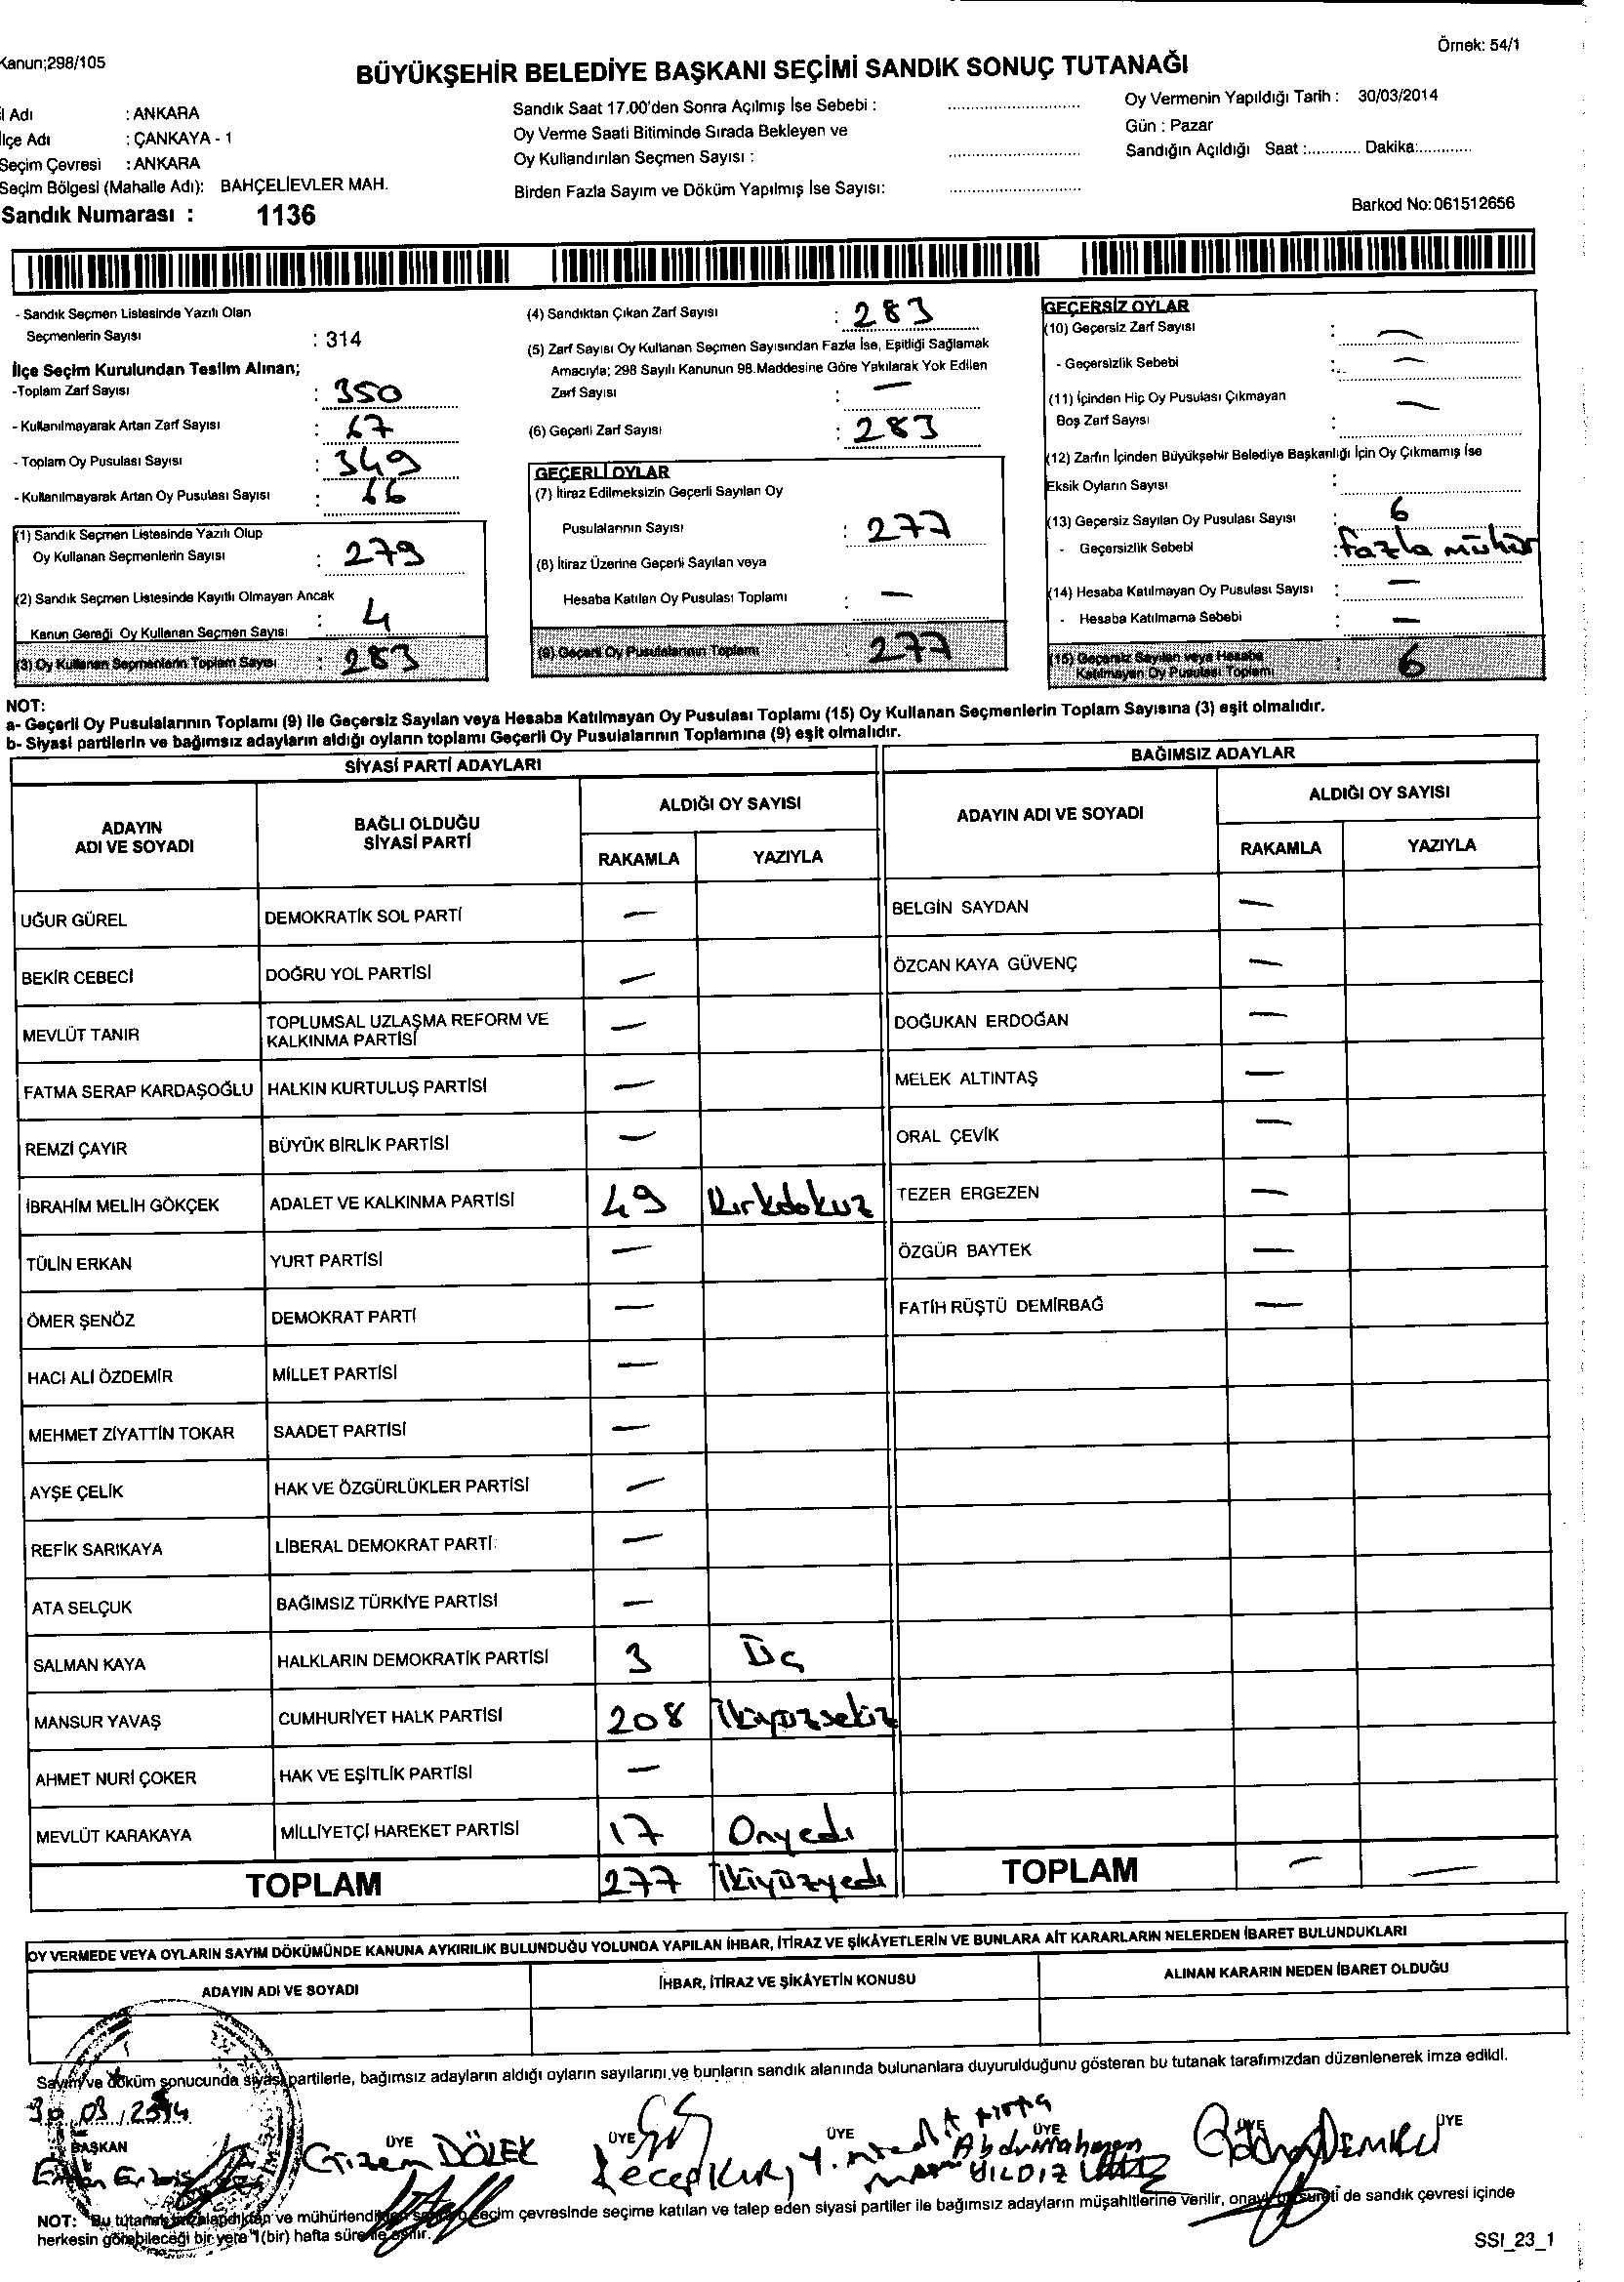 Kanun;298/105
Örnek: 54/1
BÜYÜKŞEHİR BELEDİYE BAŞKANI SEÇİMİ SANDIK SONUÇ TUTANAĞI
İl Adı : ANKARA
İlçe Adı : ÇANKAYA - 1
Seçim Çevresi : ANKARA
Seçim Bölgesi (Mahalle Adı): BAHÇELİEVLER MAH.
Sandık Numarası : 1136
Sandık Saat 17.00'den Sonra Açılmış İse Sebebi :
Oy Verme Saati Bitiminde Sırada Bekleyen ve
Oy Kullandırılan Seçmen Sayısı :
Birden Fazla Sayım ve Döküm Yapılmış İse Sayısı:
Oy Vermenin Yapıldığı Tarih : 30/03/2014
Gün : Pazar
Sandığın Açıldığı Saat :............ Dakika:............
Barkod No:061512656
- Sandık Seçmen Listesinde Yazılı Olan
Seçmenlerin Sayısı : 314
İlçe Seçim Kurulundan Teslim Alınan;
-Toplam Zarf Sayısı : 350
- Kullanılmayarak Artan Zarf Sayısı : 67
- Toplam Oy Pusulası Sayısı : 349
- Kullanılmayarak Artan Oy Pusulası Sayısı : 66
(1) Sandık Seçmen Listesinde Yazılı Olup
Oy Kullanan Seçmenlerin Sayısı : 279
(2) Sandık Seçmen Listesinde Kayıtlı Olmayan Ancak
Kanun Gereği Oy Kullanan Seçmen Sayısı : 4
(3) Oy Kullanan Seçmenlerin Toplam Sayısı : 283
(4) Sandıktan Çıkan Zarf Sayısı : 283
(5) Zarf Sayısı Oy Kullanan Seçmen Sayısından Fazla İse, Eşitliği Sağlamak
Amacıyla; 298 Sayılı Kanunun 98.Maddesine Göre Yakılarak Yok Edilen
Zarf Sayısı : —
(6) Geçerli Zarf Sayısı : 283
GEÇERLİ OYLAR
(7) İtiraz Edilmeksizin Geçerli Sayılan Oy
Pusulalarının Sayısı : 277
(8) İtiraz Üzerine Geçerli Sayılan veya
Hesaba Katılan Oy Pusulası Toplamı : —
(9) Geçerli Oy Pusulalarının Toplamı 277
GEÇERSİZ OYLAR
(10) Geçersiz Zarf Sayısı : —
- Geçersizlik Sebebi : —
(11) İçinden Hiç Oy Pusulası Çıkmayan
Boş Zarf Sayısı : —
(12) Zarfın İçinden Büyükşehir Belediye Başkanlığı İçin Oy Çıkmamış İse
Eksik Oyların Sayısı :
(13) Geçersiz Sayılan Oy Pusulası Sayısı : 6
- Geçersizlik Sebebi : fazla mühür
(14) Hesaba Katılmayan Oy Pusulası Sayısı : —
- Hesaba Katılmama Sebebi : —
(15) Geçersiz Sayılan veya Hesaba
Katılmayan Oy Pusulası Toplamı : 6
NOT:
a- Geçerli Oy Pusulalarının Toplamı (9) ile Geçersiz Sayılan veya Hesaba Katılmayan Oy Pusulası Toplamı (15) Oy Kullanan Seçmenlerin Toplam Sayısına (3) eşit olmalıdır.
b- Siyasi partilerin ve bağımsız adayların aldığı oyların toplamı Geçerli Oy Pusulalarının Toplamına (9) eşit olmalıdır.
SİYASİ PARTİ ADAYLARI
BAĞIMSIZ ADAYLAR
ADAYIN ADI VE SOYADI
BAĞLI OLDUĞU SİYASİ PARTİ
ALDIĞI OY SAYISI
RAKAMLA YAZIYLA
ADAYIN ADI VE SOYADI
ALDIĞI OY SAYISI
RAKAMLA YAZIYLA
UĞUR GÜREL DEMOKRATİK SOL PARTİ — BELGİN SAYDAN —
BEKİR CEBECİ DOĞRU YOL PARTİSİ — ÖZCAN KAYA GÜVENÇ —
MEVLÜT TANIR TOPLUMSAL UZLAŞMA REFORM VE KALKINMA PARTİSİ — DOĞUKAN ERDOĞAN —
FATMA SERAP KARDAŞOĞLU HALKIN KURTULUŞ PARTİSİ — MELEK ALTINTAŞ —
REMZİ ÇAYIR BÜYÜK BİRLİK PARTİSİ — ORAL ÇEVİK —
İBRAHİM MELİH GÖKÇEK ADALET VE KALKINMA PARTİSİ 49 Kırkdokuz TEZER ERGEZEN —
TÜLİN ERKAN YURT PARTİSİ — ÖZGÜR BAYTEK —
ÖMER ŞENÖZ DEMOKRAT PARTİ — FATİH RÜŞTÜ DEMİRBAĞ —
HACI ALİ ÖZDEMİR MİLLET PARTİSİ —
MEHMET ZİYATTİN TOKAR SAADET PARTİSİ —
AYŞE ÇELİK HAK VE ÖZGÜRLÜKLER PARTİSİ —
REFİK SARIKAYA LİBERAL DEMOKRAT PARTİ —
ATA SELÇUK BAĞIMSIZ TÜRKİYE PARTİSİ —
SALMAN KAYA HALKLARIN DEMOKRATİK PARTİSİ 3 Üç
MANSUR YAVAŞ CUMHURİYET HALK PARTİSİ 208 İkiyüzsekiz
AHMET NURİ ÇOKER HAK VE EŞİTLİK PARTİSİ —
MEVLÜT KARAKAYA MİLLİYETÇİ HAREKET PARTİSİ 17 Onyedi
TOPLAM 277 İkiyüzyedi TOPLAM — —
OY VERMEDE VEYA OYLARIN SAYIM DÖKÜMÜNDE KANUNA AYKIRILIK BULUNDUĞU YOLUNDA YAPILAN İHBAR, İTİRAZ VE ŞİKÂYETLERİN VE BUNLARA AİT KARARLARIN NELERDEN İBARET BULUNDUKLARI
ADAYIN ADI VE SOYADI İHBAR, İTİRAZ VE ŞİKÂYETİN KONUSU ALINAN KARARIN NEDEN İBARET OLDUĞU
Sayım ve döküm sonucunda siyasi partilerle, bağımsız adayların aldığı oyların sayılarını ve bunların sandık alanında bulunanlara duyurulduğunu gösteren bu tutanak tarafımızdan düzenlenerek imza edildi.
30/03/2014
BAŞKAN ÜYE ÜYE ÜYE ÜYE ÜYE ÜYE
Gizem DÖLEK Recep KURT Abdurrahman YILDIZ
NOT: Bu tutanak imzalandıktan ve mühürlendikten sonra o seçim çevresinde seçime katılan ve talep eden siyasi partiler ile bağımsız adayların müşahitlerine verilir, onaylı bir sureti de sandık çevresi içinde
herkesin görebileceği bir yere 1(bir) hafta süre ile asılır.
SSI_23_1